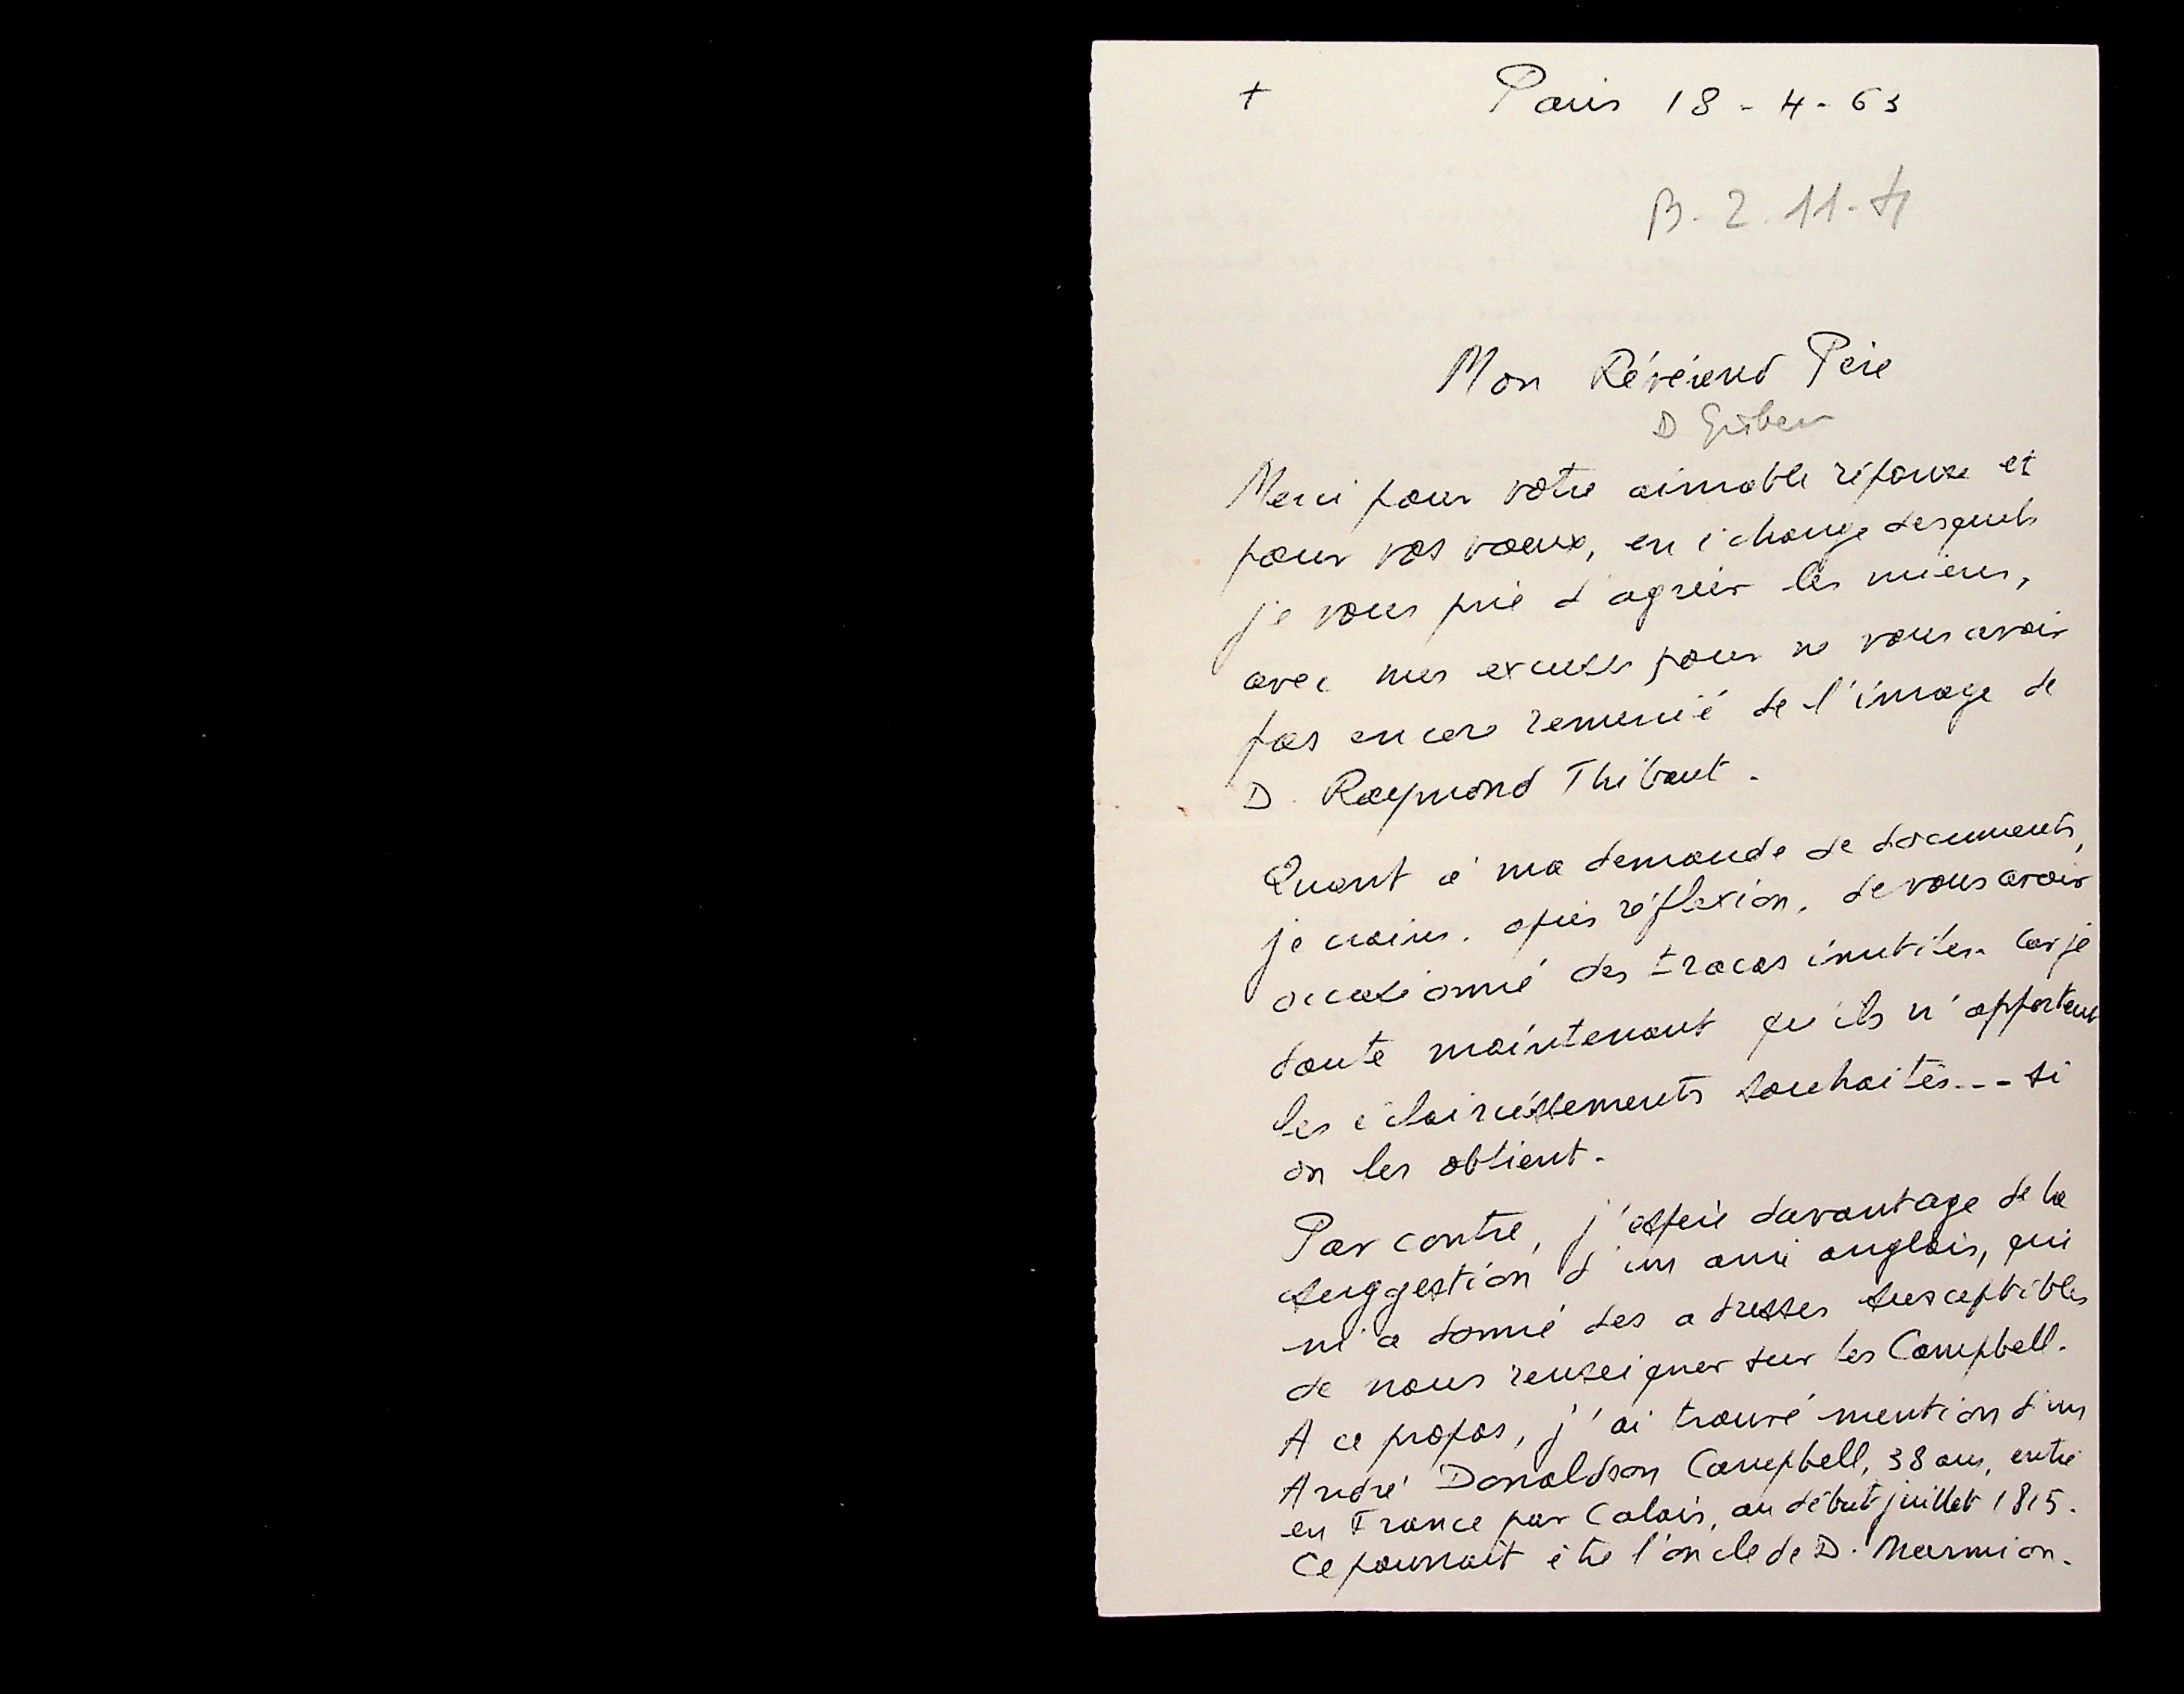 + Paris 18 - 4 - 63
B. 2. 11-
Mon Révérend Père
D
Merci pour votre aimable réponse et
pour vos voeux, en échange desquels
je vous prie d'agréer les miens,
avec mes excuses pour ne vous avoir
pas encore remercié de l'image de
D. Raymond Thibaut.
Quant à ma demande de documents,
je crains, après réflexion, de vous avoir
occasionné des tracas inutiles. Car je
doute maintenant qu'ils n'apportent
les éclaircissements souhaités --- si
on les obtient.
Par contre, j'espère davantage de la
suggestion d'un ami anglais, qui
m'a donné des adresses susceptibles
de nous renseigner sur les Campbell.
A ce propos, j'ai trouvé mention d'un
André Donaldson Campbell, 38 ans, entré
en France par Calais, au début juillet 1815.
Ce pourrait être l'oncle de D. Marmion.